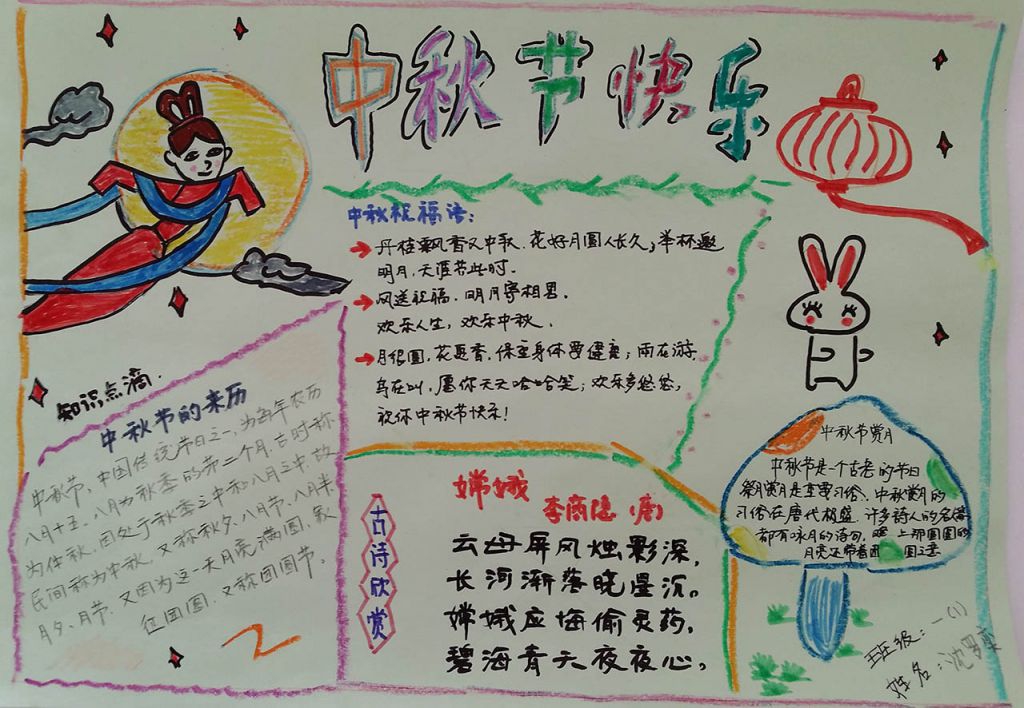 中秋节快乐
中秋祝福语:
丹桂飘香又中秋,花好月圆人长久;举杯邀
明月,天涯共此时.
风送祝福,明月寄相思,
欢乐人生,欢乐中秋.
月很圆,花更香,保重身体要健康;雨在游,
鸟在叫,愿你天天哈哈笑;欢乐多悠悠,
祝你中秋节快乐!
知识点滴.
中秋节的来历
中秋节,中国传统节日之一,为每年农历
八月十五,八月为秋季的第二个月,古时称
为仲秋,因处于秋季之中和八月之中,故
民间称为中秋,又称秋夕、八月节、八月半
月夕、月节,又因为这一天月亮满圆,象
征团圆,又称团圆节.
古诗欣赏
嫦娥
李商隐(唐)
云母屏风烛影深,
长河渐落晓星沉。
嫦娥应悔偷灵药,
碧海青天夜夜心。
中秋节赏月
中秋节是一个古老的节日
祭月赏月是重要习俗.中秋赏月的
习俗在唐代极盛.许多诗人的名
都有咏月的诗句,上那圆圆的
月亮还带着团圆之意
班级:一(1)
姓名:沈